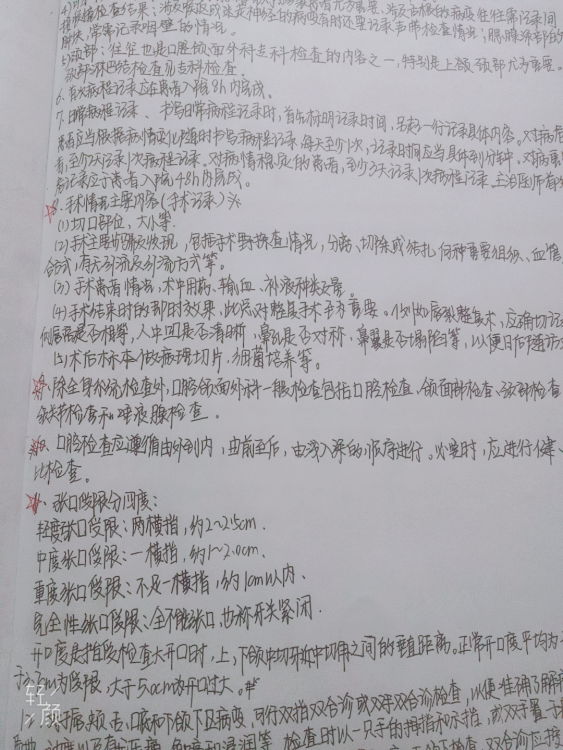 5)颈部:往往也是口腔颌面外科专科检查的内容之一,特别是上颌、颈部尤为重要。
颈部淋巴结检查见专科检查。
6. 首次病程记录应在患者入院8h内完成。
7. 日常病程记录、书写日常病程记录时,首先标明记录时间,另起一行记录具体内容。对病危
患者应当根据病情变化随时书写病程记录,每天至少1次,记录时间应当具体到分钟。对病重
者,至少2天记录1次病程记录。对病情稳定的患者,至少3天记录1次病程记录。主治医师首次
记录应于患者入院48h内完成。
8. 手术情况主要内容(手术记录)※
(1)切口部位,大小等.
(2)手术主要步骤及发现,包括手术野探查情况,分离、切除或结扎何种重要组织、血管
合方式,有无引流及引流方式等。
(3)手术患者情况,术中用药、输血、补液种类及量。
(4)手术结束时的即时效果,此点对整复手术至为重要。例如唇裂整复术,应确切记
侧唇高是否相等,人中凹是否清晰,鼻孔是否对称,鼻翼是否塌陷等,以便日后随访
(5)术后标本做病理切片,细菌培养等。
9、除全身系统检查外,口腔颌面外科一般检查包括口腔检查、颌面部检查、颈部检查
颌关节检查和唾液腺检查。
10、口腔检查应遵循由外到内,由前至后,由浅入深的顺序进行。必要时,应进行健
比检查。
11、张口受限分四度:
轻度张口受限:两横指,约2~2.5cm.
中度张口受限:一横指,约1~2.0cm.
重度张口受限:不足一横指,约1cm以内.
完全性张口受限:全不能张口,也称牙关紧闭.
开口度是指段检查大开口时,上,下颌中切牙近中切角之间的垂直距离。正常开口度平均为
为受限,大于5.0cm为开口过大。
颊、舌、口底和下颌下区病变,可行双指双合诊或双手双合诊检查,以便准确了解病
检查时以一只手的拇指和示指,或双手置于
轻颜